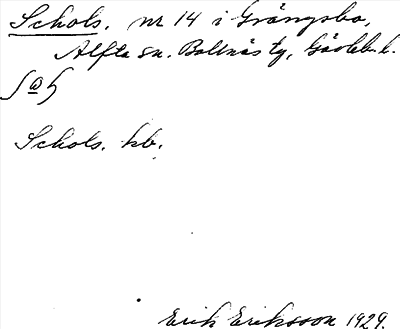 Schols. nr 14 i Grängsbo,
Alfta sn. Bollnäs tg, Gävleb. l.
Schols. hb.
Erik Eriksson 1929.